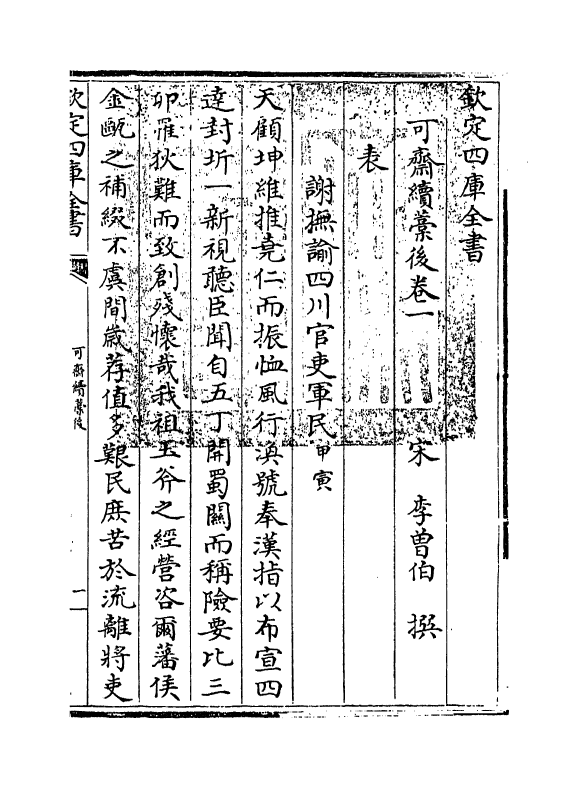 欽定四庫全書
可齋續藁後卷一
宋 李曾伯 撰
表
謝撫諭四川官吏軍民甲寅
天顧坤維推堯仁而振恤風行渙號奉漢指以布宣四
達封圻一新視聽臣聞自五丁開蜀關而稱險要比三
卯罹狄難而致創殘懷哉我祖玉斧之經營咨爾藩侯
金甌之補綴不虞間歲荐值多艱民庶苦於流離將吏
欽定四庫全書
可齋續藁後